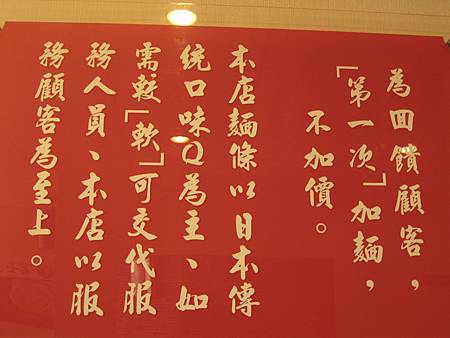 為回饋顧客，
「第一次」加麵，
不加價。
本店麵條以日本傳
統口味Q為主、如
需較「軟」可交代服
務人員、本店以服
務顧客為至上。